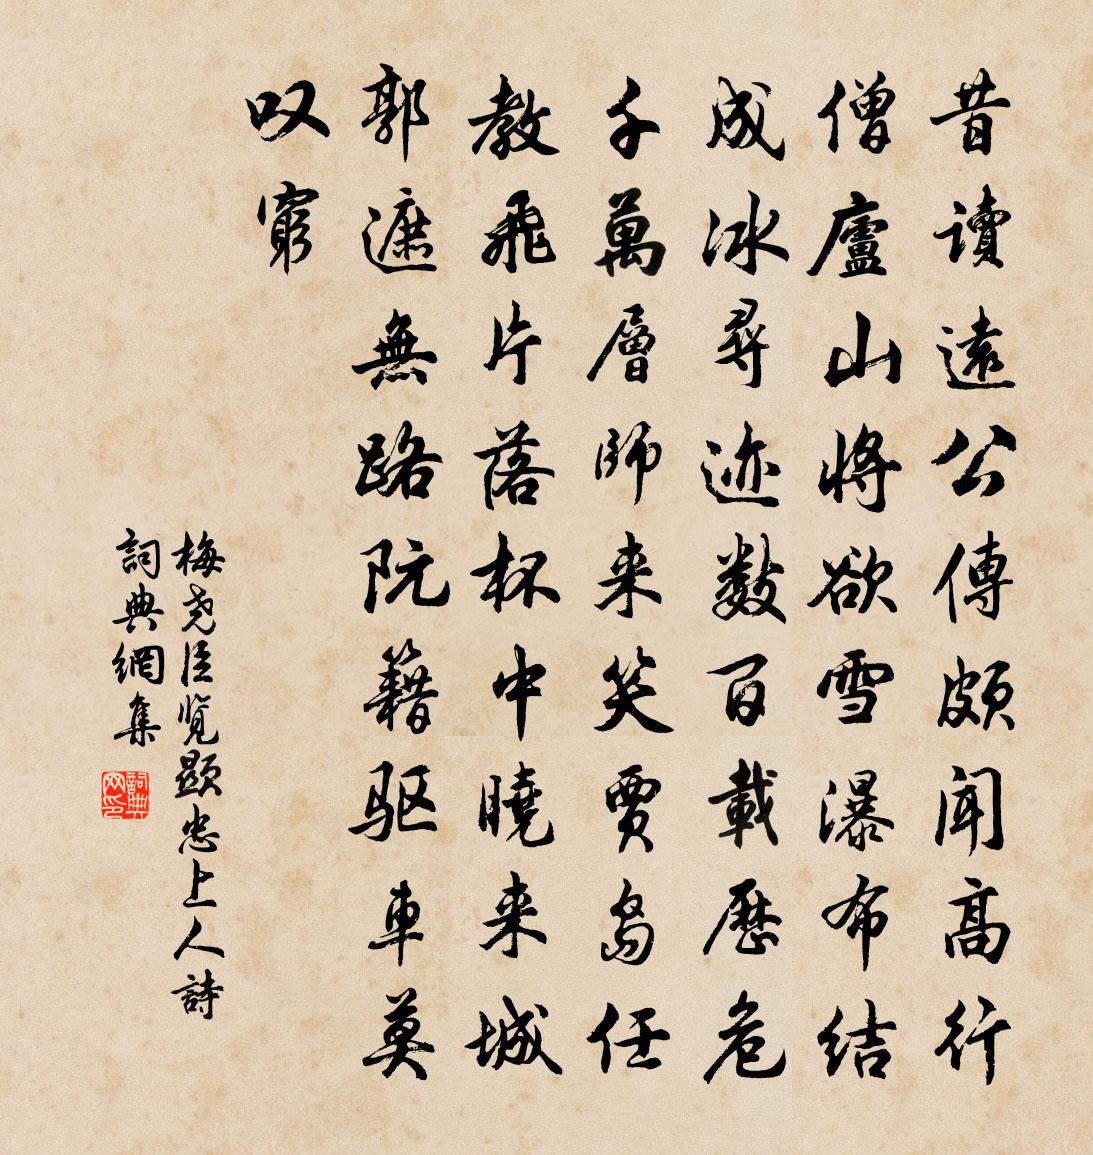 昔讀遠公傳頗聞高行
僧廬山將欲雪瀑布結
成冰尋迹數百載歷危
千萬層師来笑賈島任
教飛片落杯中曉来城
郭遮無路阮籍驱車莫
叹窮
梅尧臣览顯忠上人詩
詞典網集
詞典网印